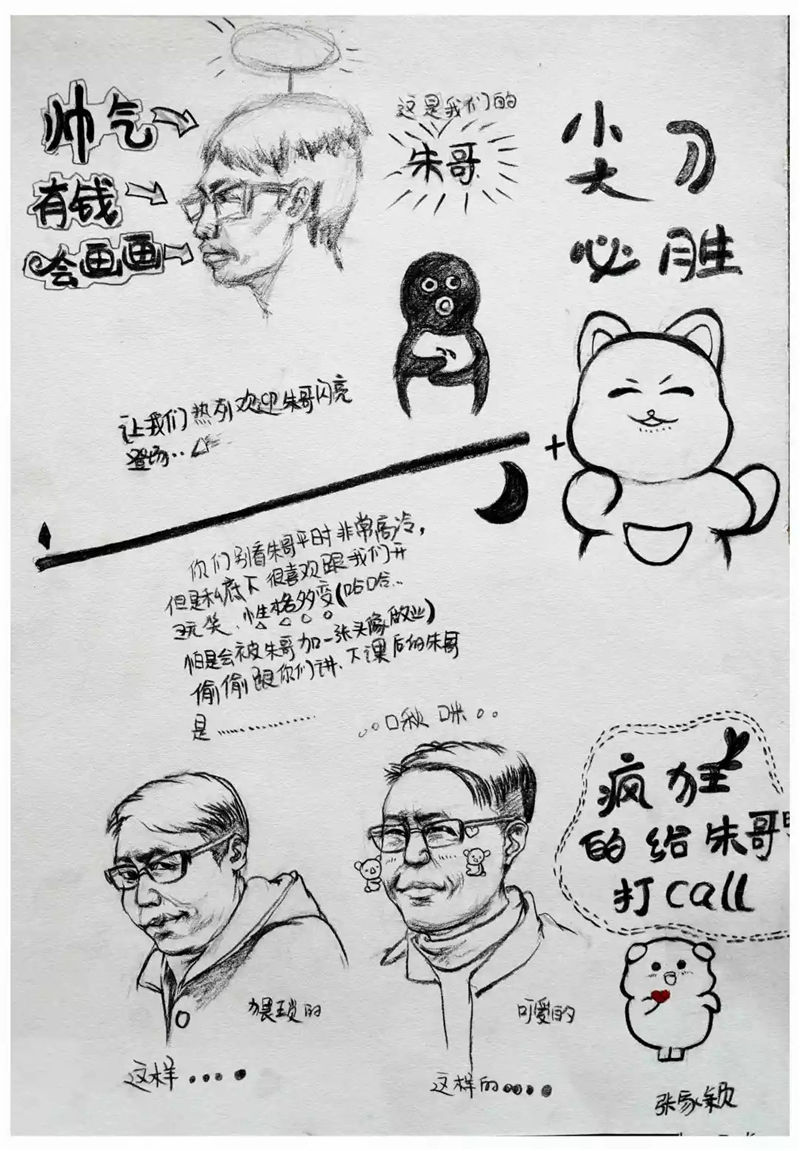 帅气
有钱
会画画
这是我们的
朱哥
小大刀
必胜
让我们热列欢迎朱哥闪亮
登场··
+
你们别看朱哥平时非常高冷,
但是私底下很喜欢跟我们开
玩笑、性格多变(哈哈..
怕是会被朱哥加一张头像做业)
偷偷跟你们讲、下课后的朱哥
是..............
。。口秋口咪。。
疯狂
的给朱哥
打call
猥琐的
这样····
可爱的
这样的····
张家颖